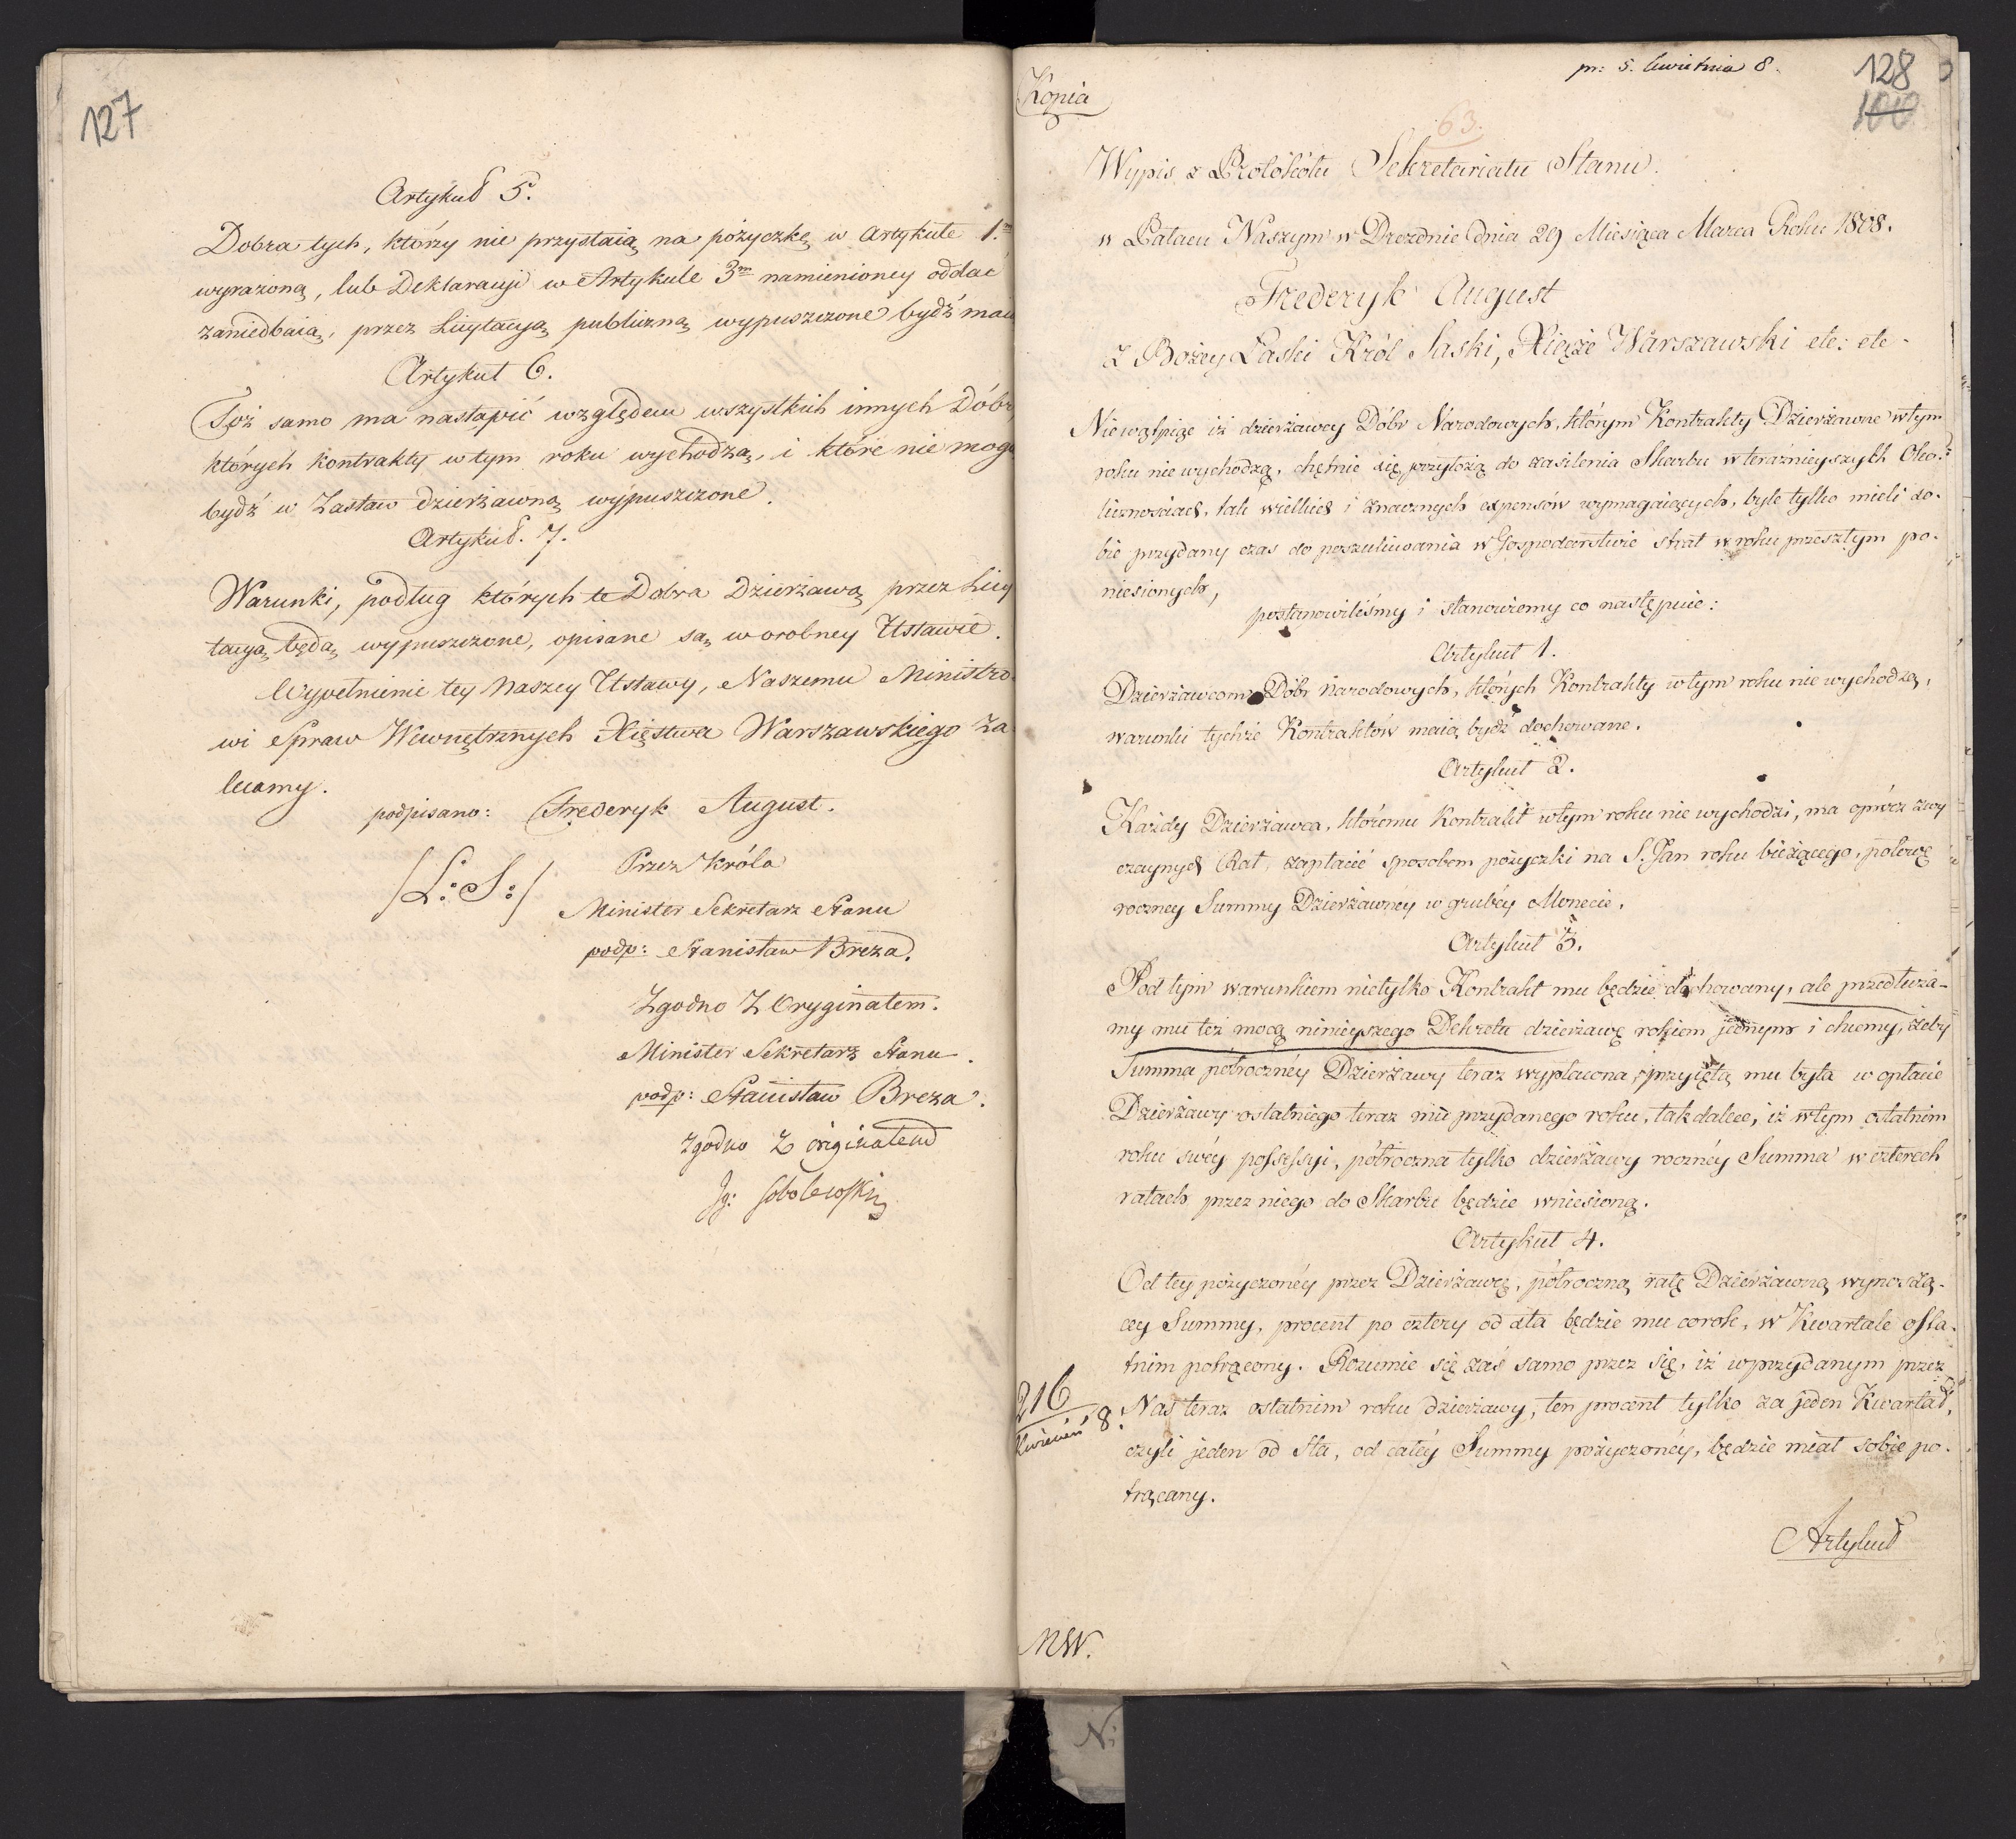 127
Artykuł 5.
Dobra tych, którzy nie przystaią na pożyczkę w Artykule 1.m
wyrażoną, lub Deklaracyi w Artykule 3m namienioney oddać
zaniedbaią, przez Licytacyą publiczną wypuszczone bydź maią
Artykuł 6.
Toż samo ma nastąpić względem wszystkich innych Dóbr,
których kontrakty w tym roku wychodzą, i które nie mogą
bydź w Zastaw dzierżawną wypuszczone.
Artykuł. 7.
Warunki, podług których te Dobra Dzierżawą przez Licy
tacyą będą wypuszczone, opisane są w osobney Ustawie.
Wypełnienie tey Naszey Ustawy, Naszemu Ministro-
wi Spraw Wewnętrznych Xięstwa Warszawskiego za
lecamy.
podpisano: Frederyk August.
/L: S:/
Przez Króla
Minister Sekretarz Stanu
podp: Stanisław Breza.
Zgodno Z Oryginałem.
Minister Sekretarz Stanu.
podp: Stanisław Breza.
zgodno Z originałem
Jg: Sobolewski
pr: 5. kwietnia 8.
128
100
Kopia
63.
Wypis z Protokółu Sekretariatu Stanu.
w Pałacu Naszym w Dreznie dnia 29 Miesiąca Marca Roku 1808.
Frederyk August
Z Bożey Łaski Król Saski, Xiąże Warszawski etc: etc.
Niewątpiąc iż dzierżawcy Dóbr Narodowych, którym Kontrakty Dzierżawne w tym
roku nie wychodzą, chętnie się przyłożą do zasilenia Skarbu w teraznieyszych Oko-
licznościach, tak wielkich i znacznych expensów wymagaiących, byle tylko mieli so-
bie przydany czas do poszukiwania w Gospodarstwie strat w roku przeszłym po-
niesionych,
postanowiliśmy i stanowiemy co następuie:
Artykuł 1.
Dzierżawcom Dóbr Narodowych, których Kontrakty w tym roku nie wychodzą,
warunki tychże Kontraktów maią bydź dochowane.
Artykuł 2.
Każdy Dzierżawca, któremu Kontrakt w tym roku nie wychodzi, ma oprócz zwy
czaynych Rat, zapłacić sposobem pożyczki na S. Jan roku bieżącego, połowę
roczney Summy Dzierżawnéy w grubéy Monecie.
Artykuł 3.
Pod tym warunkiem nietylko Kontrakt mu będzie dochowany, ale przedłuża-
my mu też mocą ninieyszego Dekretu dzierżawę rokiem jednym i chcemy, żeby
Summa półrocznéy Dzierżawy teraz wypłacona, przyiętą mu była w opłacie
Dzierżawy ostatniego teraz mu przydanego roku, tak dalece, iż w tym ostatnim
roku swéy possessyi, półroczna tylko dzierżawy rocznéy Summa w czterech
ratach przez niego do Skarbu będzie wniesioną.
Artykuł 4.
Od tey pożyczonéy przez Dzierżawcę, półroczną ratę Dzierżawną wynoszą-
cey Summy, procent po cztery od sta będzie mu corok, w Kwartale osta-
tnim potrącony. Rozumie się zaś samo przez się, iż w przydanym przez
Nas teraz ostatnim roku dzierżawy, ten procent tylko za jeden Kwartał,
czyli jeden od Sta, od całéy Summy pożyczonéy, będzie miał sobie po-
trącany.
216
Kwiecień 8.
Artykuł
MW.
N: